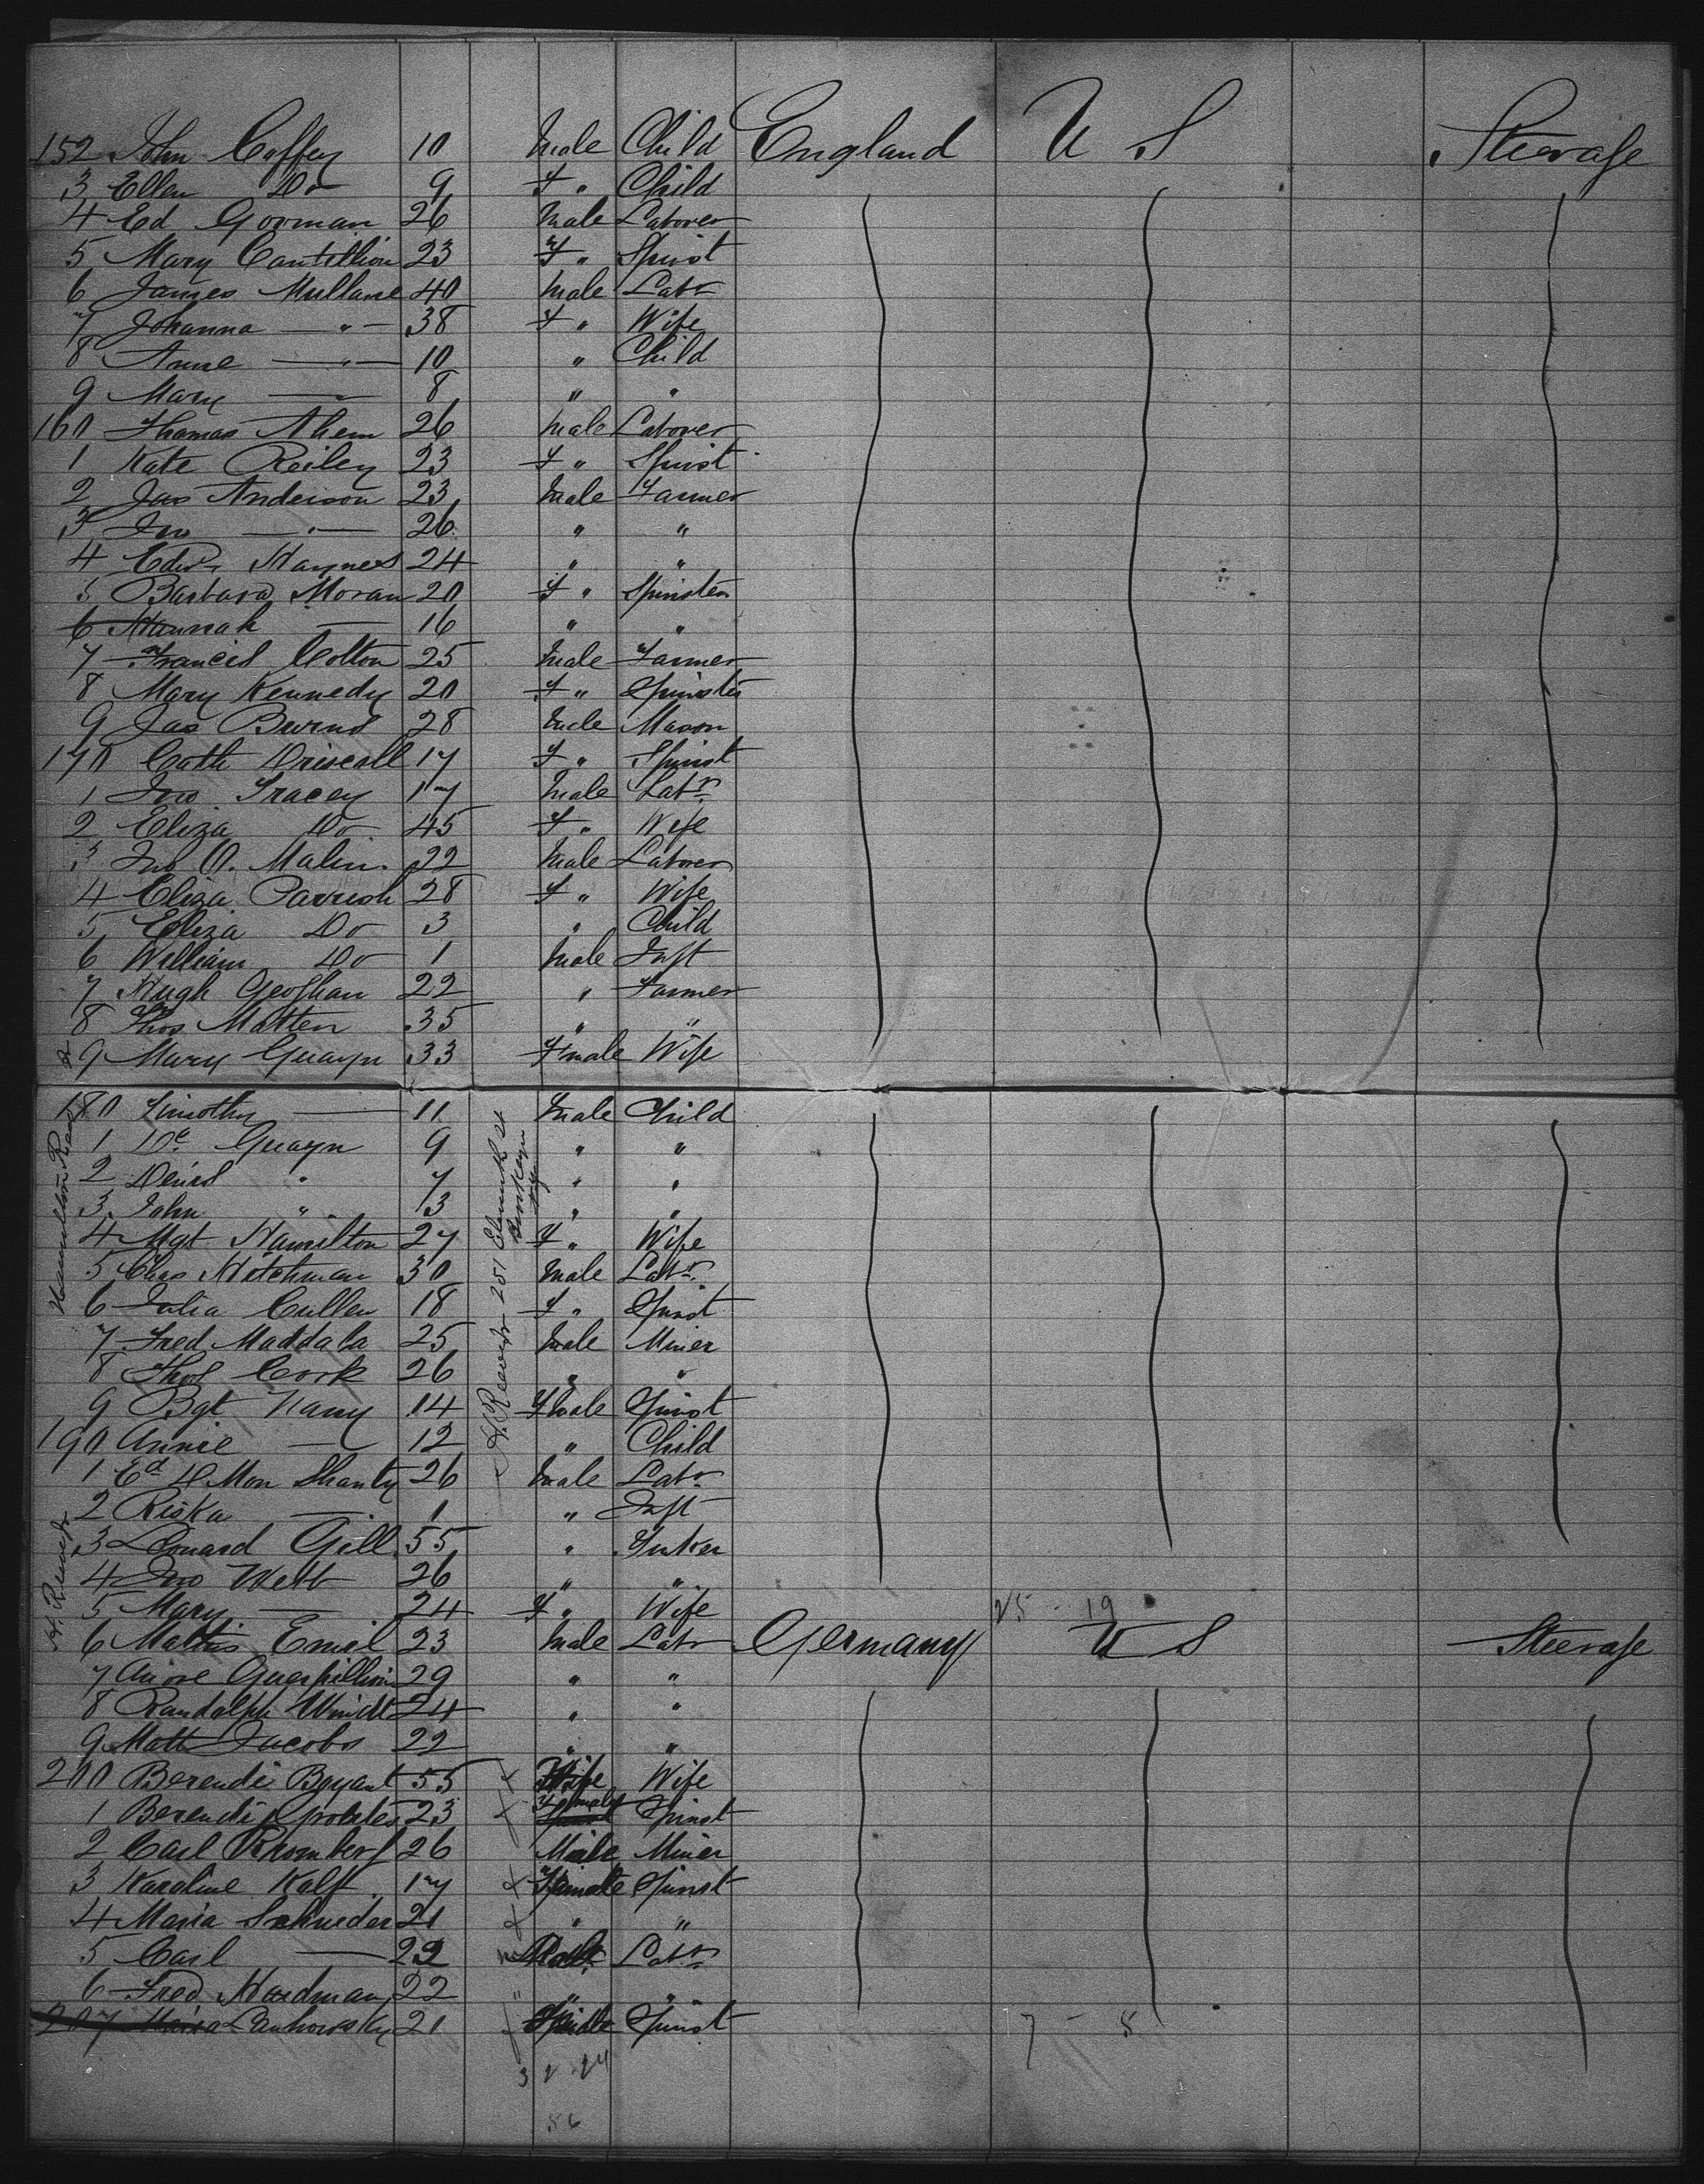 152 John Coffey 10 Male Child England U S Steerage
3 Ellen Do 9 F " Child
4 Ed Gorman 26 Male Laborer
5 Mary Cantillion 23 F " Spinst
6 James Mullane 40 Male Labr
7 Johanna — " — 38 F " Wife
8 Anne — " — 10 " Child
9 Mary — " — 8 " "
160 Thomas Ahern 26 Male Laborer
1 Kate Reiley 23 F " Spinst
2 Jas Anderson 23 Male Farmer
3 Jno — " — 26 " "
4 Edwd Haynes 24 " "
5 Barbara Moran 20 F " Spinster
6 Hannah — 16 " "
7 Francis Colton 25 Male Farmer
8 Mary Kennedy 20 F " Spinster
9 Jas Burns 28 Male Mason
170 Cath Driscoll 17 F " Spinst
1 Jno Tracey 17 Male Labr
2 Eliza Do 45 F " Wife
3 Jno O. Malin 22 Male Laborer
4 Eliza Parrish 28 F " Wife
5 Eliza Do 3 " Child
6 William Do 1 Male Inft
7 Hugh Geoghan 22 " Farmer
8 Thos Matten 35 " "
9 Mary Guayn 33 Fmale Wife
180 Timothy — 11 Male Child
1 Do Guayn 9 " "
2 Denis " 7 " "
3 John " 13 " "
4 Mgt Hamilton 27 F " Wife
5 Chas Hetchman 30 Male Labr
6 Julia Cullen 18 F " Spinst
7 Fred Maddala 25 Male Miner
8 Thos Cork 26 " "
9 Bgt 14 Fmale Spinst
190 Annie — 12 " Child
1 Ed Shanty 26 Male Labr
2 Riska — 1 " Inft
3 Leonard Gill 55 " Tinker
4 Jno Webb 26 " "
5 Mary — 24 F " Wife 25 - 19
6 Mattis Emil 23 Male Labr Germany U S Steerage
7 29 " "
8 Randolph Windt 24 " "
9 Matt Jacobs 22 " "
200 Berendi Boyant 55 Wife
1 Berendi 23 Female Spinst
2 Carl Rhomberg 26 Male Miner
3 Karoline Kalff 17 Female Spinst
4 Maria Schneider 21 " "
5 Carl — 22 Male Labr
6 Fred Hardman 22 " "
207 Maria 21 Spinst 7 - 8
3 2 24
56